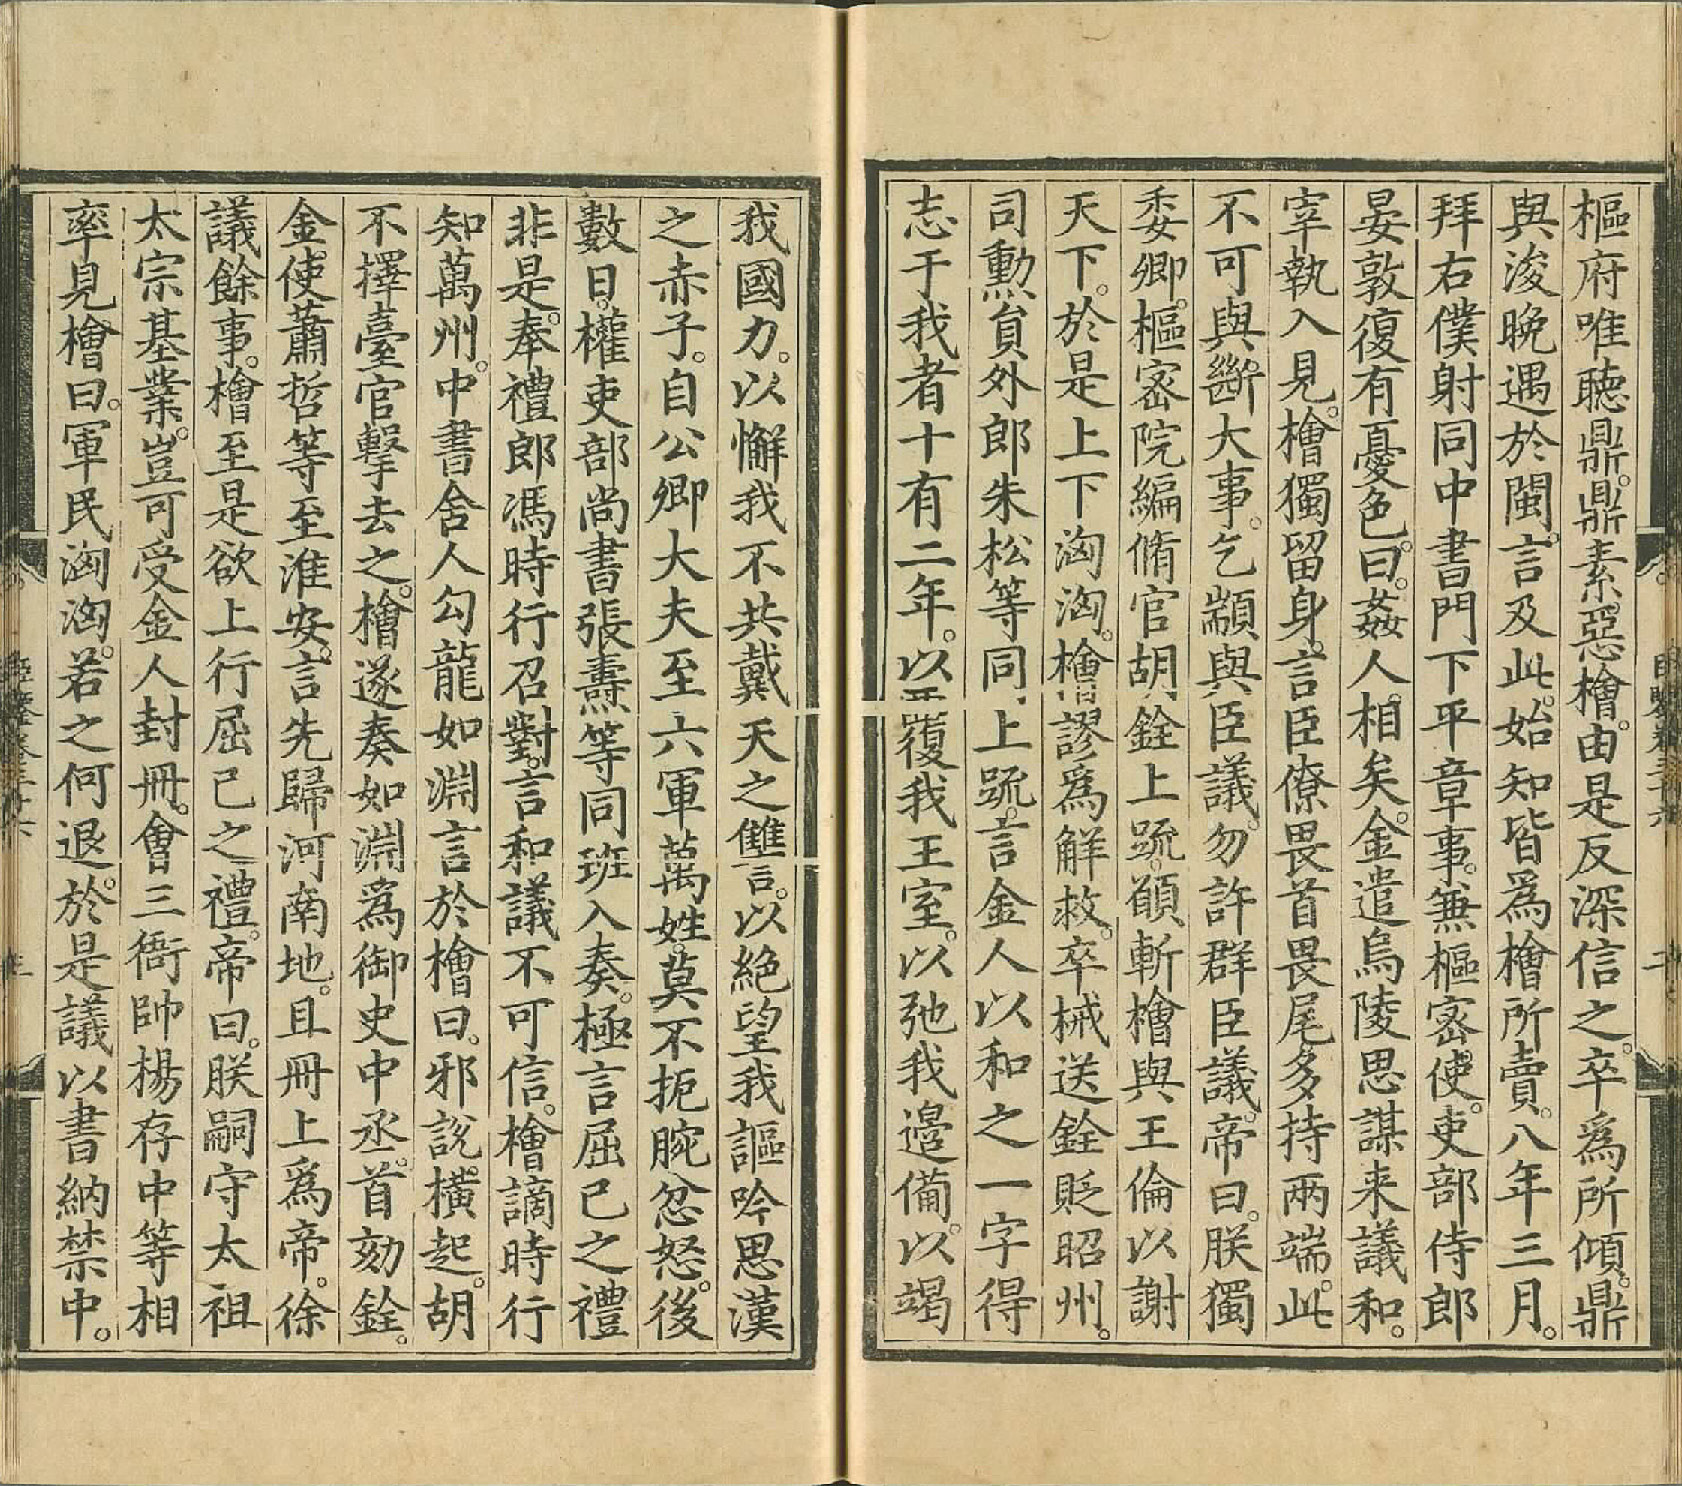 樞府唯聽鼎。鼎素惡檜。由是反深信之。卒爲所傾。鼎
與浚晚遇於閩。言及此。始知皆爲檜所賣。八年三月。
拜右僕射同中書門下平章事。兼樞密使。吏部侍郎
晏敦復有憂色。曰。姦人相矣。金遣烏陵思謀来議和。
宰執入見。檜獨留身。言臣僚畏首畏尾。多持兩端。此
不可與斷大事。乞顓與臣議。勿許群臣議。帝曰。朕獨
委卿。樞密院編脩官胡銓上疏。願斬檜與王倫以謝
天下。於是上下洶洶。檜謬爲解救。卒械送銓貶昭州。
司勳員外郎朱松等同上疏。言金人以和之一字得
志于我者十有二年。以覆我王室。以弛我邊備。以竭
我國力。以懈我不共戴天之讎言。以絕望我謳吟思漢
之赤子。自公卿大夫至六軍萬姓。莫不扼腕忿怒。後
數日。權吏部尚書張燾等同班入奏。極言屈己之禮
非是。奉禮郎馮時行召對。言和議不可信。檜謫時行
知萬州。中書舍人勾龍如淵言於檜曰。邪說橫起。胡
不擇臺官擊去之。檜遂奏如淵爲御史中丞。首劾銓。
金使蕭哲等至淮安。言先歸河南地。且冊上爲帝。徐
議餘事。檜至是欲上行屈己之禮。帝曰。朕嗣守太祖
太宗基業。豈可受金人封冊。會三衙帥楊存中等相
率見檜曰。軍民洶洶。若之何退。於是議以書納禁中。